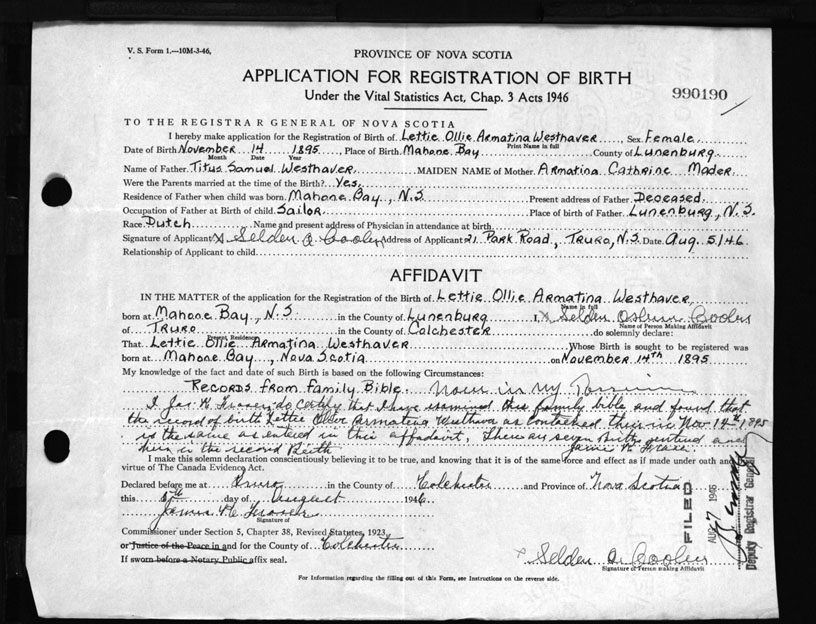 V. S. Form 1.—10M-3-46,
PROVINCE OF NOVA SCOTIA
APPLICATION FOR REGISTRATION OF BIRTH
Under the Vital Statistics Act, Chap. 3 Acts 1946
990190
TO THE REGISTRAR GENERAL OF NOVA SCOTIA
I hereby make application for the Registration of Birth of Lettie Ollie Armatina Westhaver, Sex Female
Print Name in full
Date of Birth November 14 1895 Place of Birth Mahone Bay County of Lunenburg
Month Date Year
Name of Father Titus Samuel Westhaver MAIDEN NAME of Mother Armatina Cathrine Mader
Were the Parents married at the time of the Birth? Yes
Residence of Father when child was born Mahone Bay, N.S. Present address of Father Deceased
Occupation of Father at Birth of child Sailor Place of birth of Father Lunenburg, N.S.
Race Dutch Name and present address of Physician in attendance at birth
Signature of Applicant x Selden O Address of Applicant 21 Park Road, Truro, N.S. Date Aug. 5/46
Relationship of Applicant to child
AFFIDAVIT
IN THE MATTER of the application for the Registration of the Birth of Lettie Ollie Armatina Westhaver
Name in full
born at Mahone Bay, N.S. in the County of Lunenburg I, x Selden
Name of Person Making Affidavit
of Truro in the County of Colchester do solemnly declare:
Present Residence
That Lettie Ollie Armatina Westhaver Whose Birth is sought to be registered was
born at Mahone Bay, Nova Scotia on November 14th 1895
My knowledge of the fact and date of such Birth is based on the following Circumstances:
Records from Family Bible. Now in my
I Jas. H. Fraser do certify that I have examined this family bible and found that
the record of birth Lettie Armatina as contained therein Nov 14th 1895
is the same as entered in this affadavit, There are seven births entered and
hers is the second Birth
I make this solemn declaration conscientiously believing it to be true, and knowing that it is of the same force and effect as if made under oath and by
virtue of The Canada Evidence Act.
Declared before me at Truro in the County of Colchester and Province of Nova Scotia
this day of August 1946
James Fraser
Signature of
Commissioner under Section 5, Chapter 38, Revised Statutes, 1923
or Justice of the Peace in and for the County of Colchester
If sworn before a Notary Public affix seal.
x Selden O
Signature of Person Making Affidavit
For Information regarding the filling out of this Form, see Instructions on the reverse side.
FILED
AUG 7 1946
Deputy Registrar General